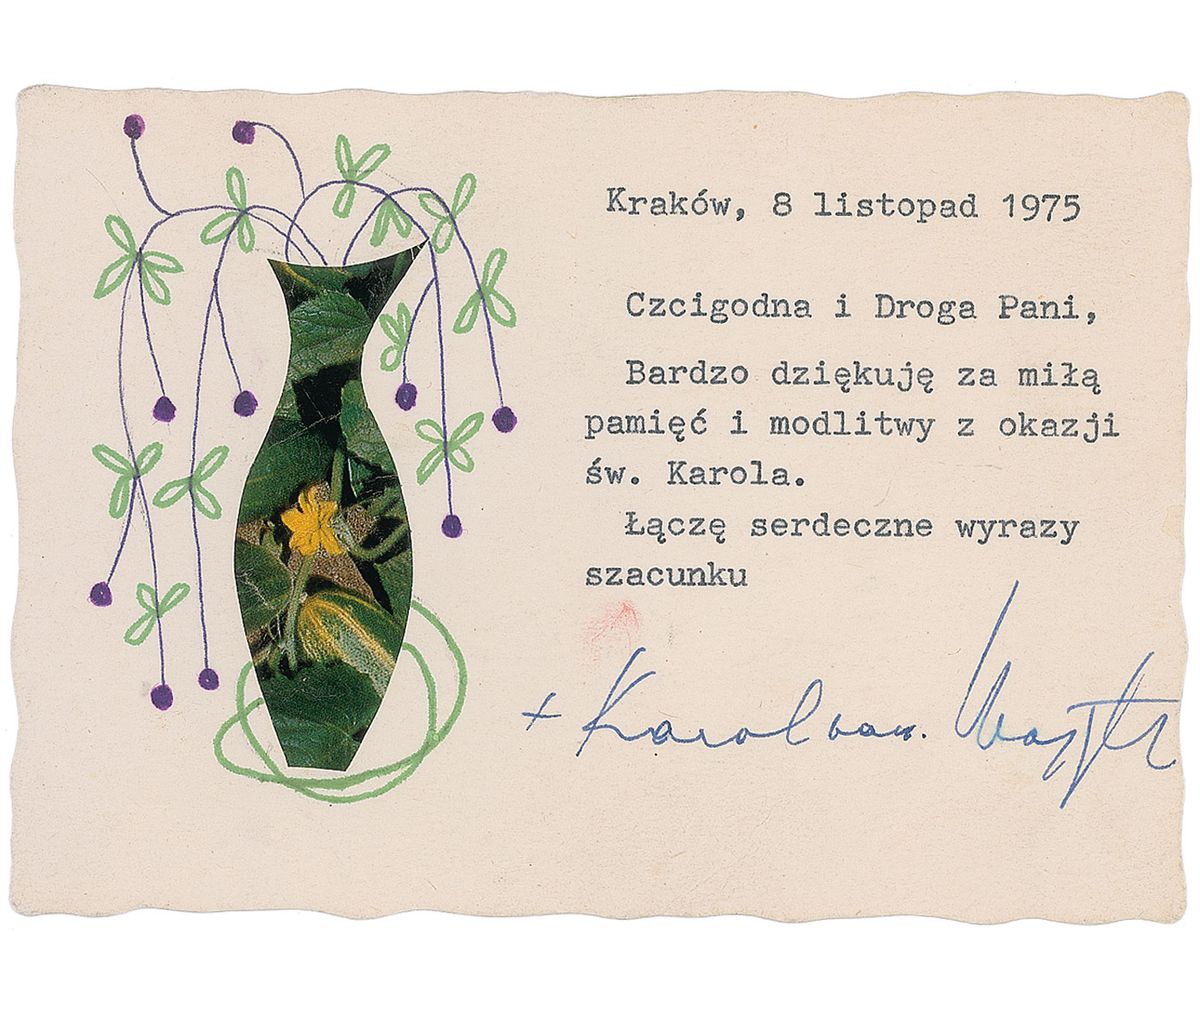 Kraków, 8 listopad 1975
Czcigodna i Droga Pani,
Bardzo dziękuję za miłą
pamięć i modlitwy z okazji
św. Karola.
Łączę serdeczne wyrazy
szacunku
+ Karol kard. Wojtyła